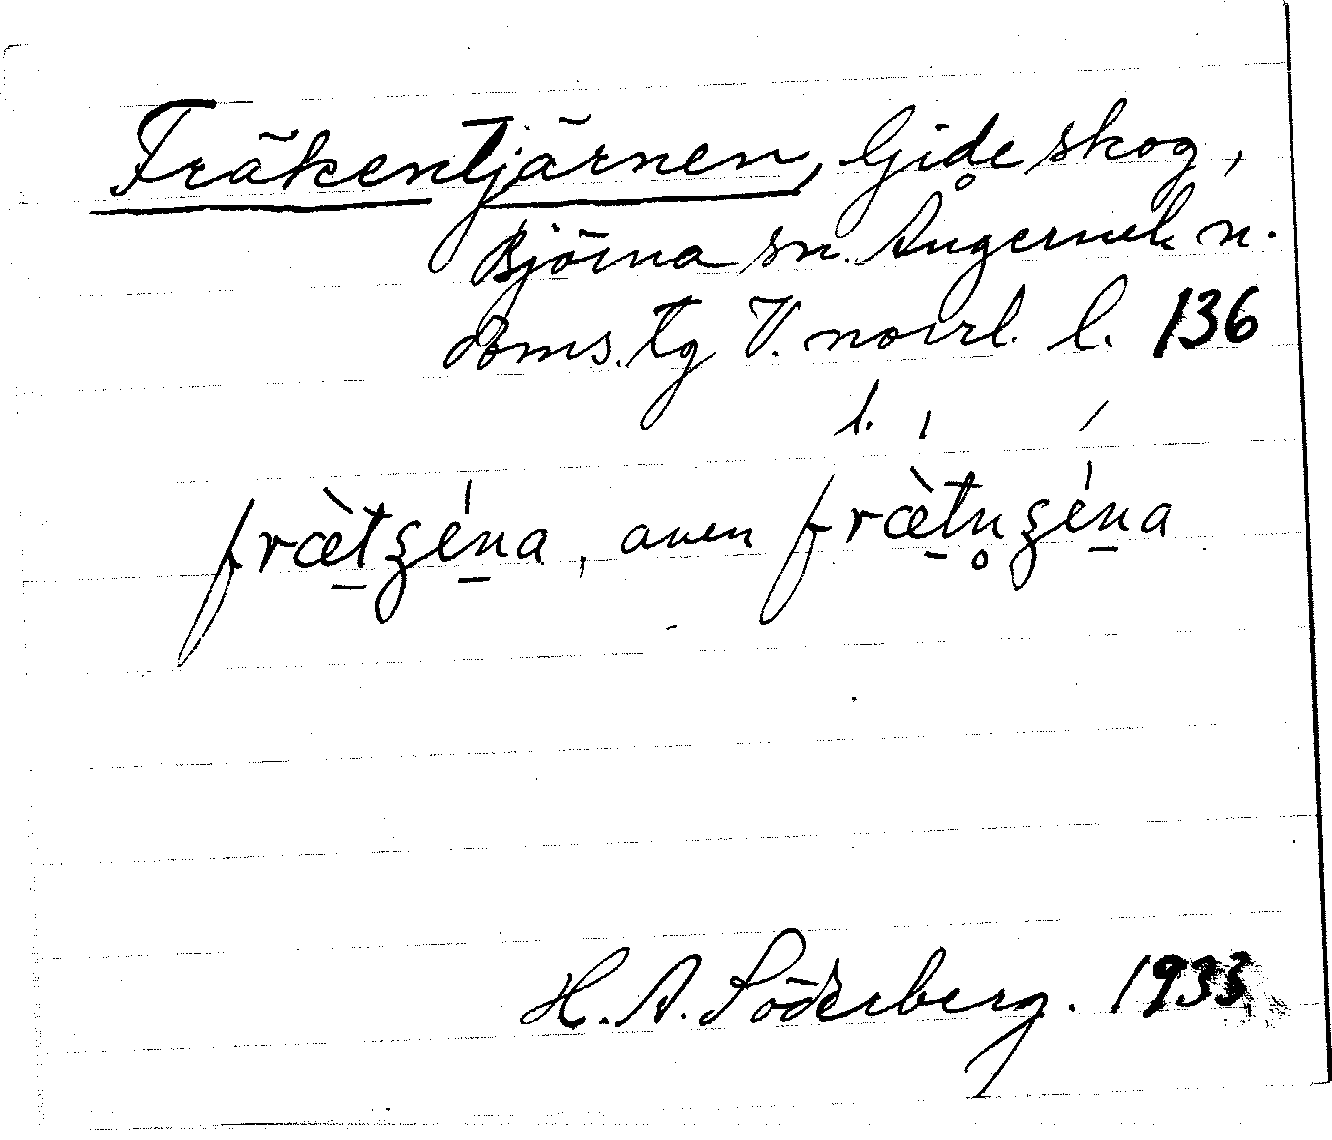 Fräkentjärnen, Gideskog,
Björna sn. Ångerml. n.
doms. tg V. norrl. l. 136
l. ˈ ˊ
fræ̀tʂéna, även fræ̀tn̥ʂéna
H. A. Söderberg. 1933